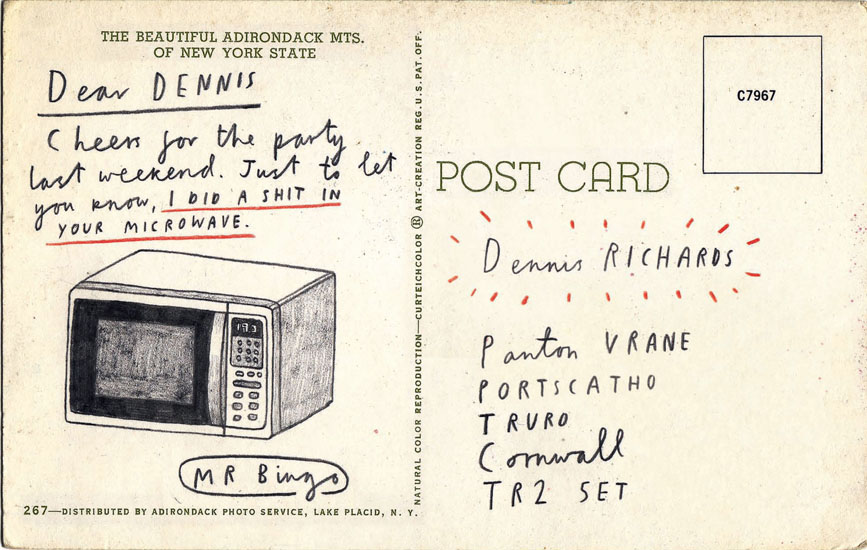 THE BEAUTIFUL ADIRONDACK MTS.
OF NEW YORK STATE
Dear DENNIS
Cheers for the party
last weekend. Just to let
you know, I DID A SHIT IN
YOUR MICROWAVE.
MR Bingo
267—DISTRIBUTED BY ADIRONDACK PHOTO SERVICE, LAKE PLACID, N. Y.
NATURAL COLOR REPRODUCTION—CURTEICHCOLOR ® ART-CREATION REG. U.S. PAT. OFF.
C7967
POST CARD
Dennis RICHARDS
Panton VRANE
PORTSCATHO
TRURO
Cornwall
TR2 5ET